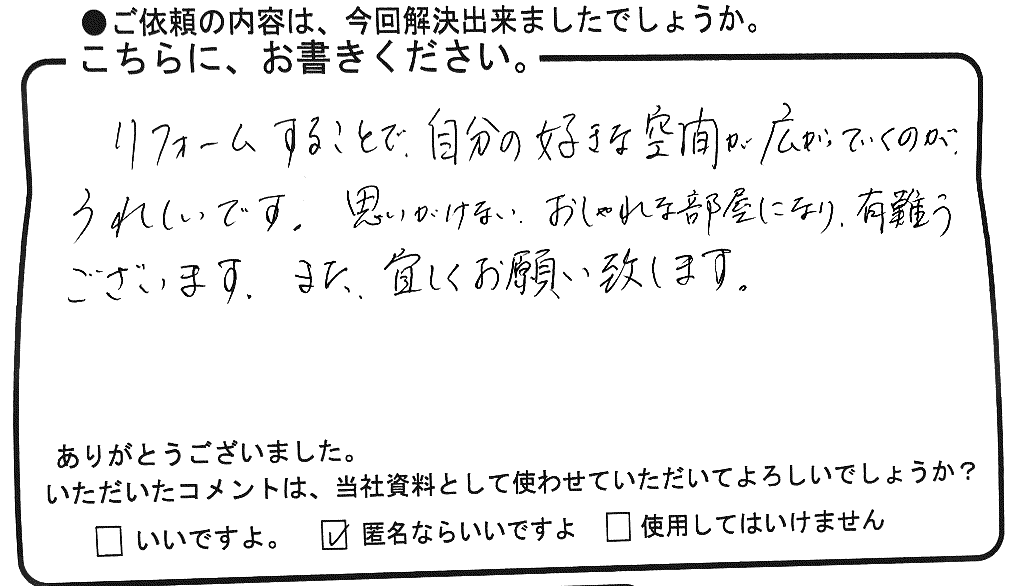 ●ご依頼の内容は、今回解決出来ましたでしょうか。
こちらに、お書きください。
リフォームすることで、自分の好きな空間が広がっていくのが、
うれしいです。思いがけない、おしゃれな部屋になり、有難う
ございます。また、宜しくお願い致します。
ありがとうございました。
いただいたコメントは、当社資料として使わせていただいてよろしいでしょうか？
□ いいですよ。 ☑ 匿名ならいいですよ □ 使用してはいけません